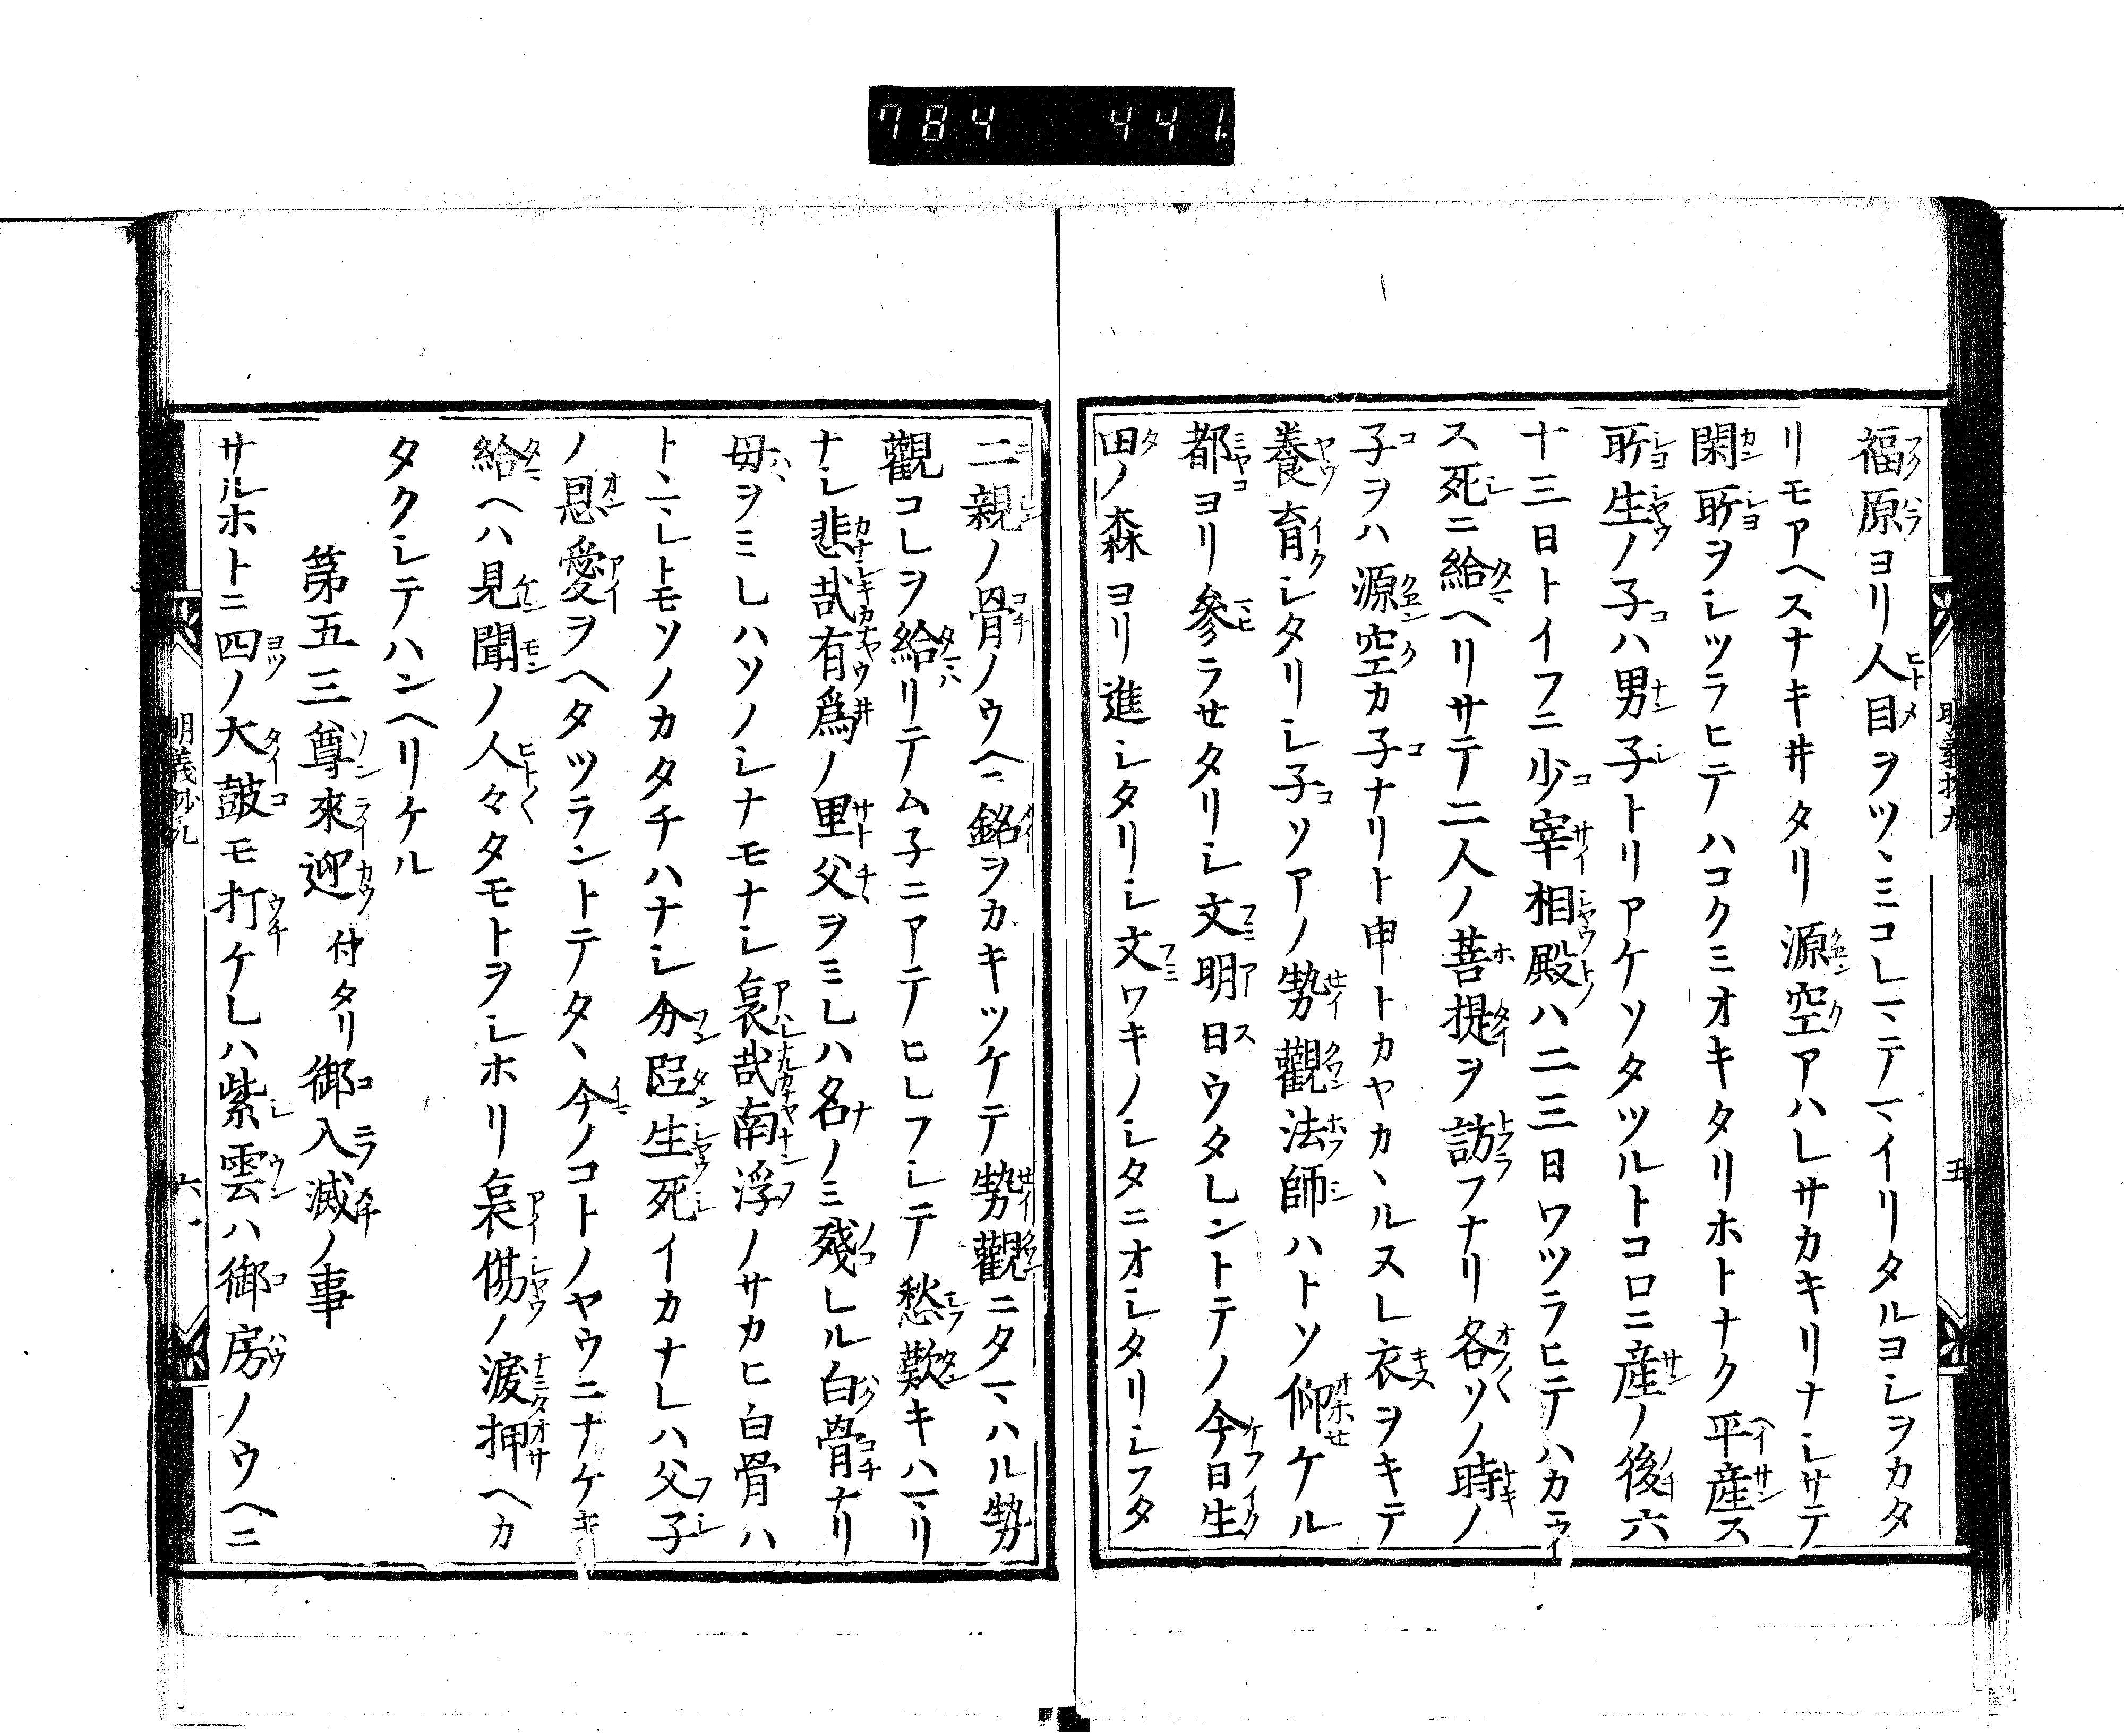 784 441
福原ヨリ人目ヲツヽミコレマテマイリタルヨシヲカタ
リモアヘスナキ井タリ源空アハレサカキリナシサテ
閑所ヲシツラヒテハコクミオキタリホトナク平産ス
所生ノ子ハ男子トリアケソタツルトコロニ産ノ後六
十三日トイフニ少宰相殿ハ二三日ワツラヒテハカライ
ス死ニ給ヘリサテ二人ノ菩提ヲ訪フナリ各ソノ時ノ
子ヲハ源空カ子ナリト申トカヤカヽルヌレ衣ヲキテ
養育シタリシ子ソアノ勢觀法師ハトソ仰ケル
都ヨリ參ラセタリシ文明日ウタレントテノ今日生
田ノ森ヨリ進シタリシ文ワキノシタニオシタリシフタ
明義抄九
五
二親ノ骨ノウヘニ銘ヲカキツケテ勢觀ニタマハル勢
觀コレヲ給リテム子ニアテヒレフシテ愁歎キハマリ
ナシ悲哉有爲ノ里父ヲミレハ名ノミ殘レル白骨ナリ
母ヲミレハソノシナモナシ哀哉南浮ノサカヒ白骨ハ
トヽマレトモソノカタチハナシ分段生死イカナレハ父子
ノ恩愛ヲヘタツラントテタヽ今ノコトノヤウニナケキ
給ヘハ見聞ノ人々タモトヲシホリ哀傷ノ淚押ヘカ
タクシテハンヘリケル
第五三尊來迎 付タリ御入滅ノ事
サルホトニ四ノ大皷モ打ケレハ紫雲ハ御房ノウヘニ
明義抄九
六